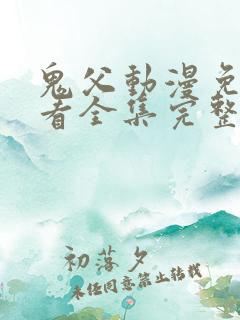 鬼父動漫免
看全集完整
初落夕
未经同意禁止转载